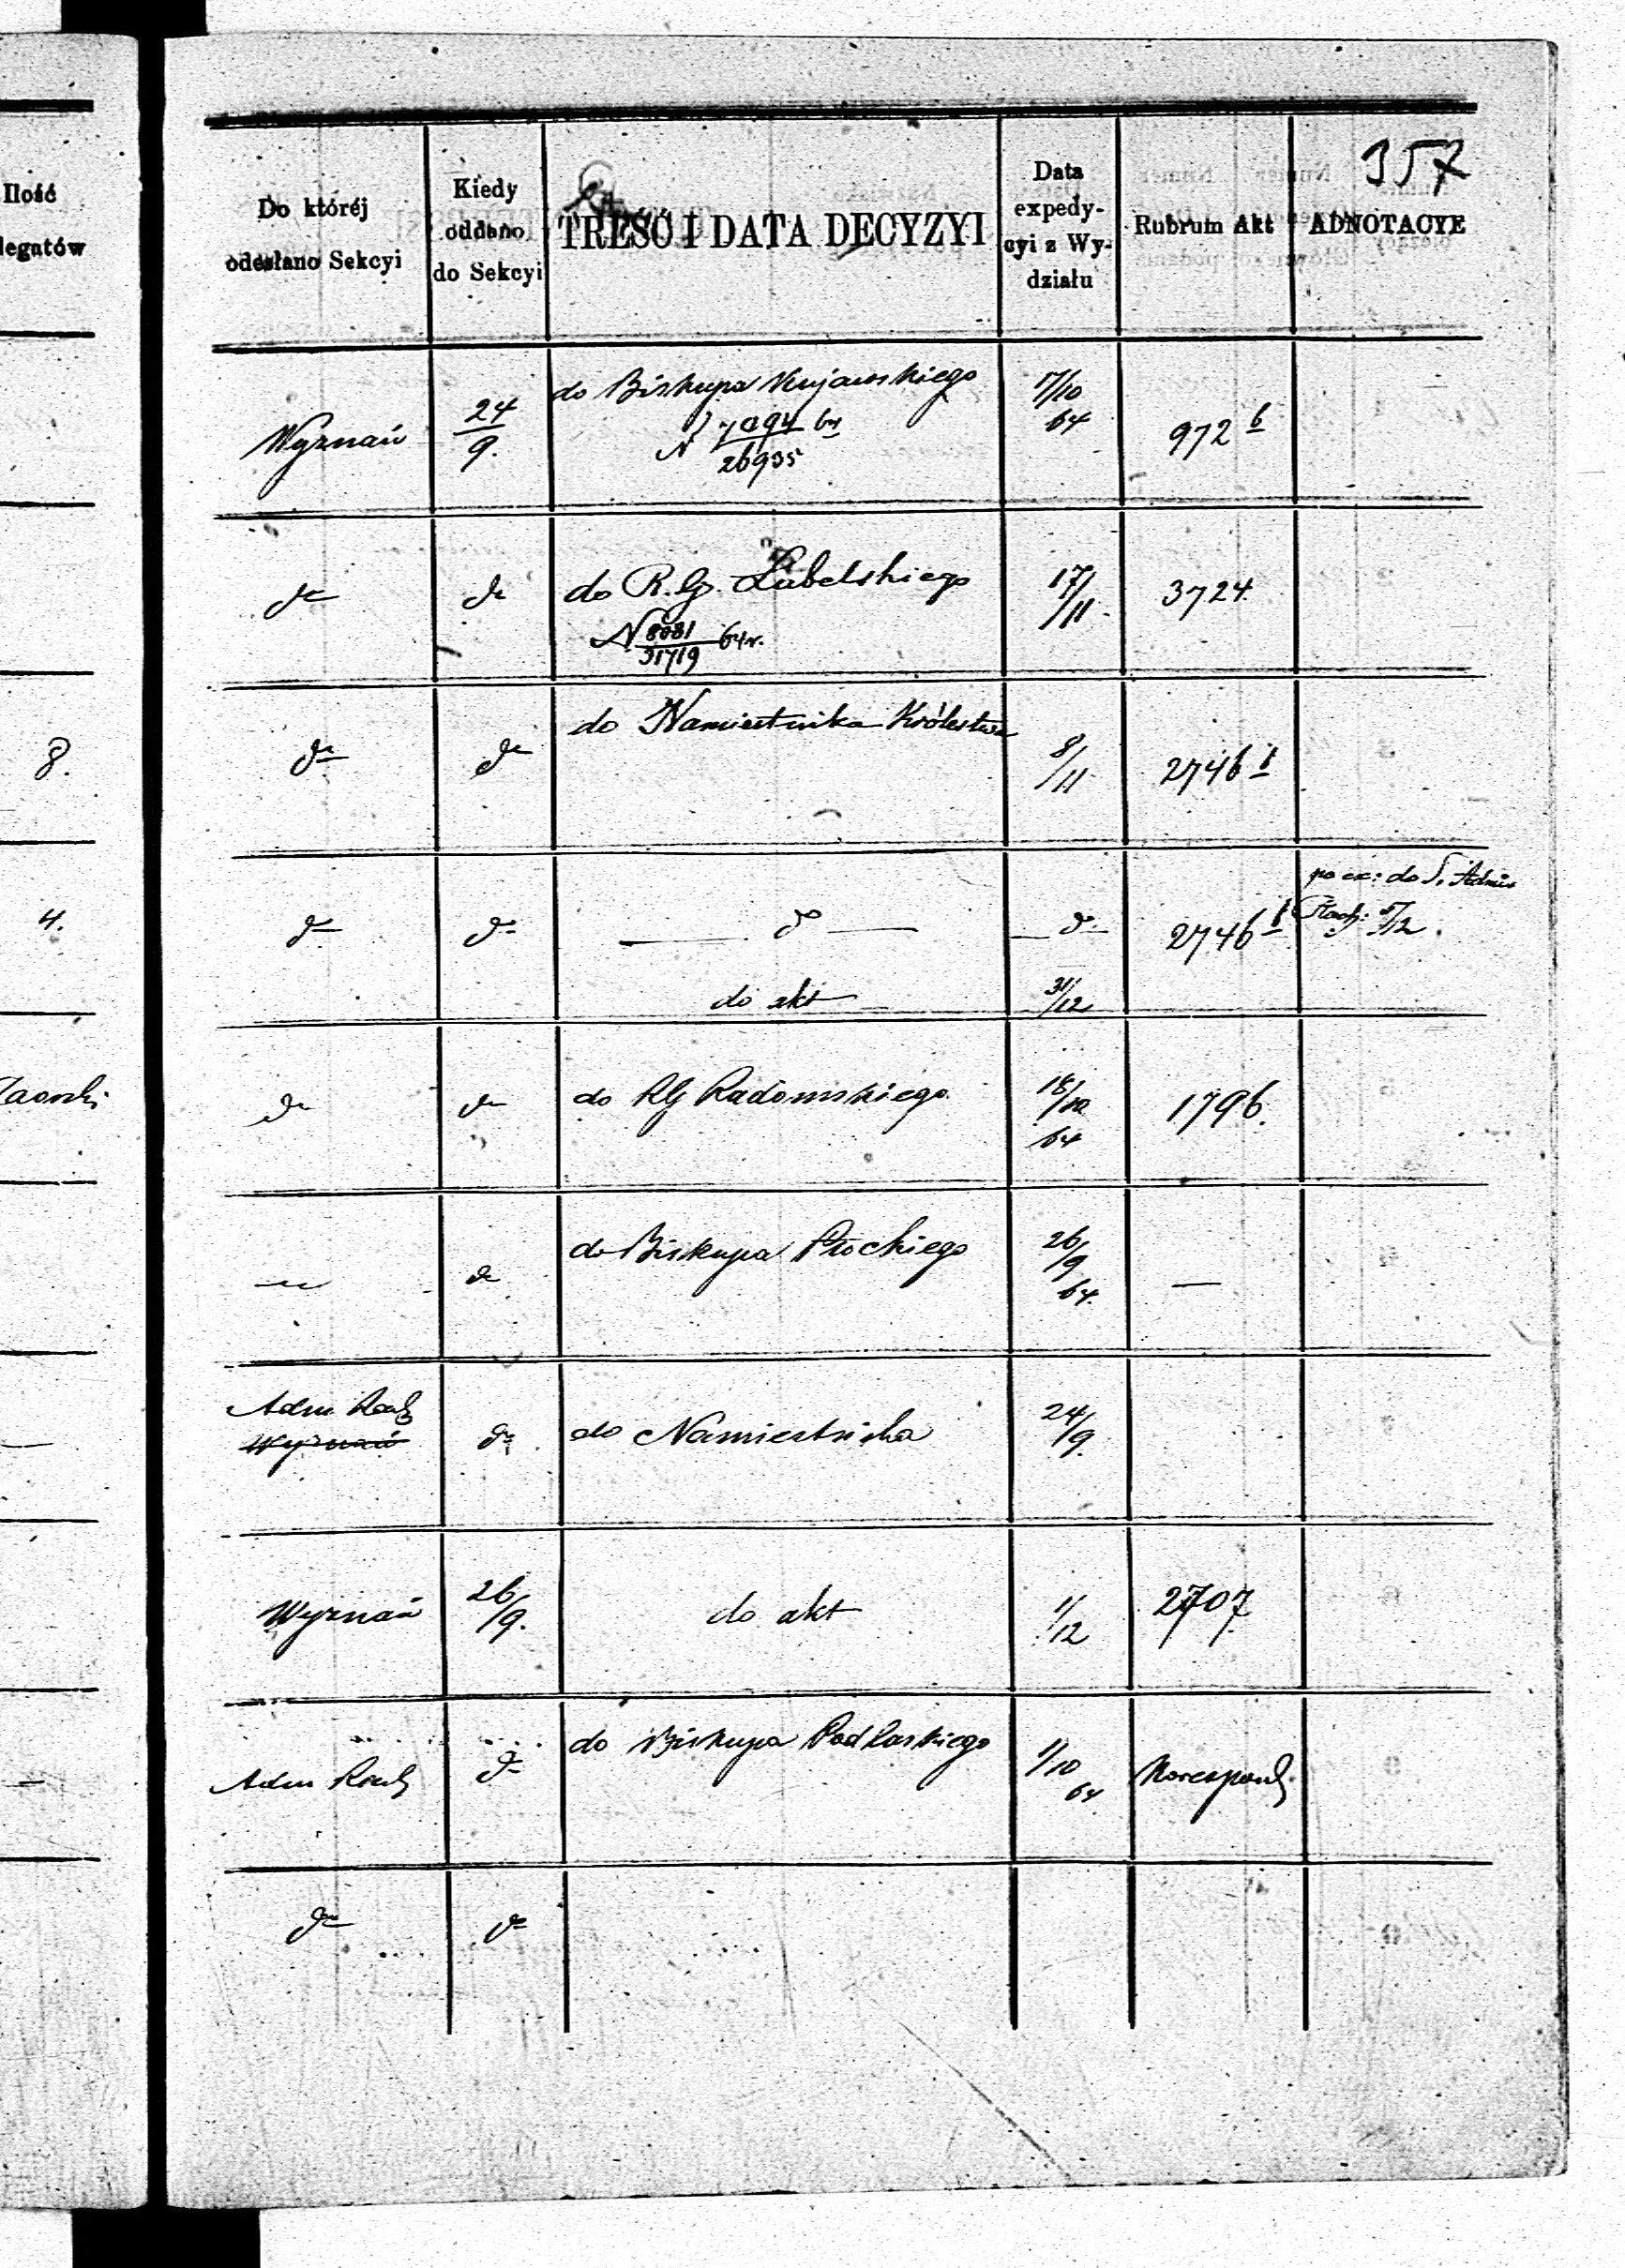 357
Ilość
legatów
Do któréj
odesłano Sekcyi
Kiedy
oddano
do Sekcyi
TREŚĆ I DATA DECYZYI
Data
expedy-
cyi z Wy-
działu
Rubrum Akt
ADNOTACYE
Wyznań
24/9.
do Biskupa Kujawskiego
N 7094/26935 64
17/10
64
972 b
do
do
do R. G. Lubelskiego
N 8081/31719 64 r.
17/11
3724
8.
do
do
do Namiestnika Królestwa
8/11
2746 b
4.
do
do
do
do
2746 b
po ex: do S. Admin
Rach: 5/12.
do akt
31/12
do
do
do RG Radomskiego
18/10
64
1796.
do
do Biskupa Płockiego
26/9
64.
—
Adm Rach
Wyznań
do
do Namiestnika
24/9.
Wyznań
26/9.
do akt
1/12
2707
Adm Rach
do
do Biskupa Podlaskiego
1/10
64
Korespond
do
do